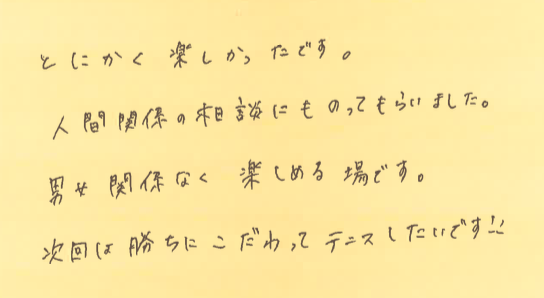 とにかく楽しかったです。
人間関係の相談にものってもらいました。
男女関係なく楽しめる場です。
次回は勝ちにこだわってテニスしたいです!!